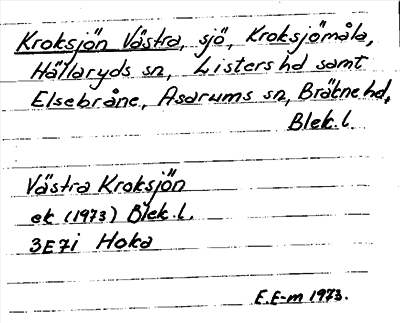 Kroksjön Västra, sjö, Kroksjömåla,
Hällaryds sn, Listers hd samt
Elsebråne, Asarums sn, Bräkne hd,
Blek. l.
Västra Kroksjön
ek (1973) Blek. l.
3E7i Hoka
E.E-m 1973.